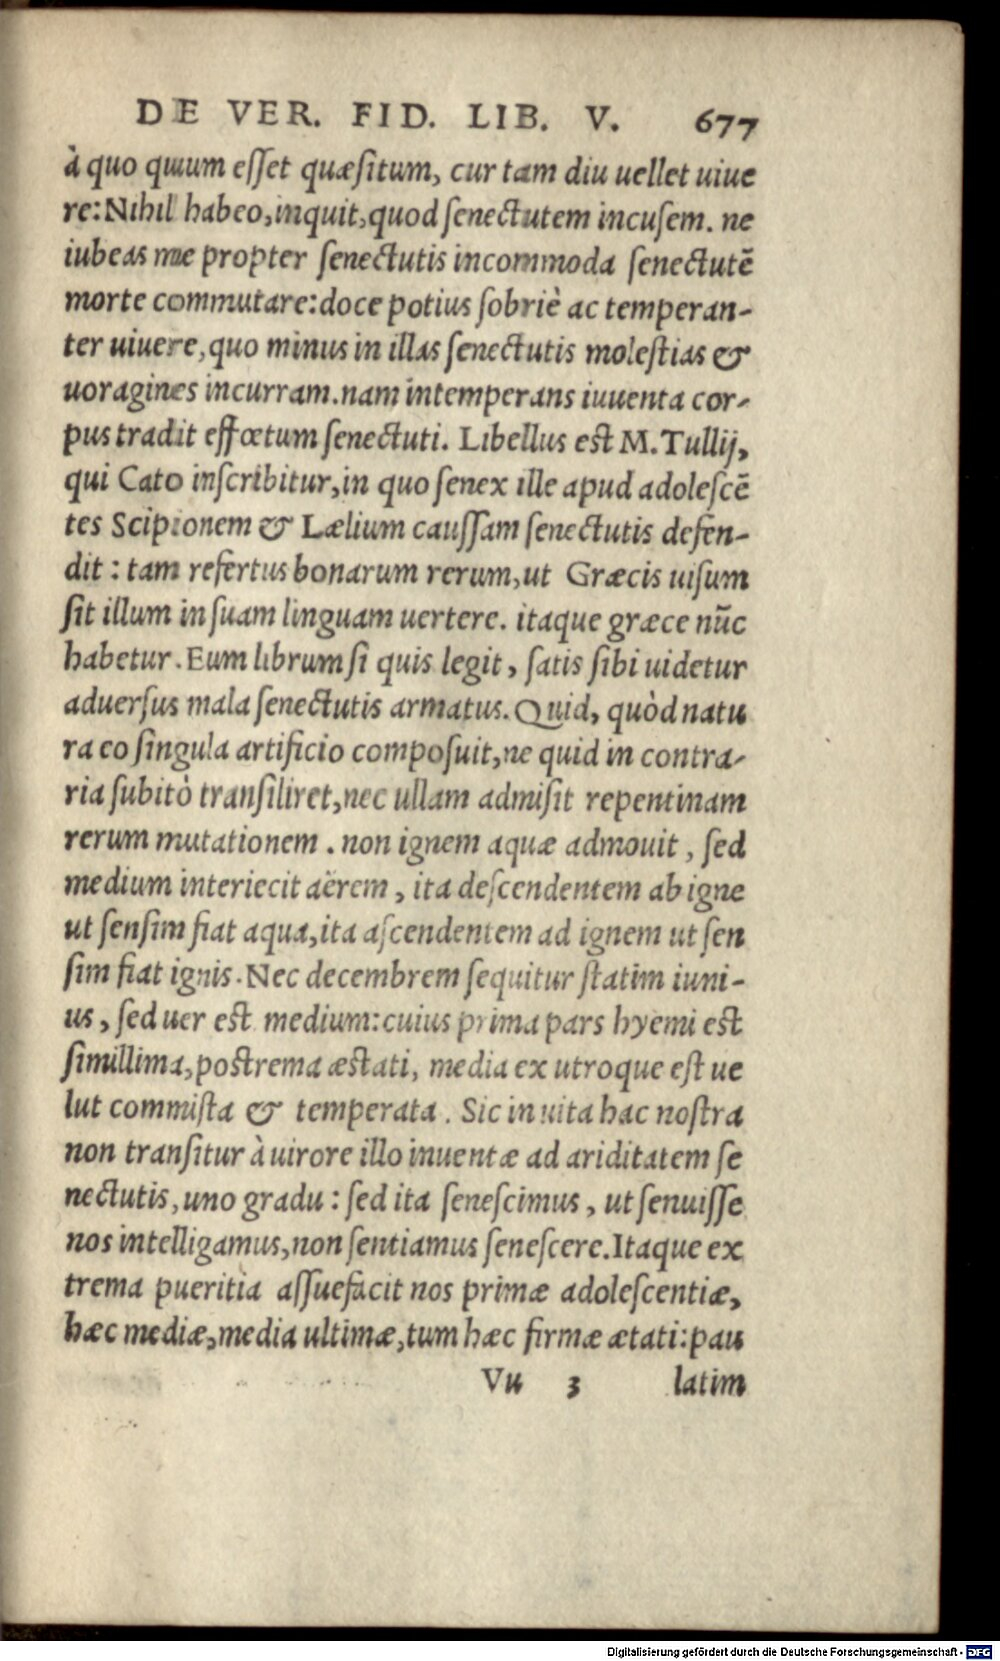 DE VER. FID. LIB. V. 677
à quo quum esset quæsitum, cur tam diu uellet uiue
re: Nihil habeo, inquit, quod senectutem incusem. ne
iubeas me propter senectutis incommoda senectutē
morte commutare: doce potius sobriè ac temperan-
ter uiuere, quo minus in illas senectutis molestias &
uoragines incurram. nam intemperans iuuenta cor-
pus tradit effœtum senectuti. Libellus est M. Tullij,
qui Cato inscribitur, in quo senex ille apud adolescē
tes Scipionem & Lælium caussam senectutis defen-
dit: tam refertus bonarum rerum, ut Græcis uisum
sit illum in suam linguam uertere. itaque græce nūc
habetur. Eum librum si quis legit, satis sibi uidetur
aduersus mala senectutis armatus. Quid, quòd natu
ra eo singula artificio composuit, ne quid in contra-
ria subitò transiliret, nec ullam admisit repentinam
rerum mutationem. non ignem aquæ admouit, sed
medium interiecit aërem, ita descendentem ab igne
ut sensim fiat aqua, ita ascendentem ad ignem ut sen
sim fiat ignis. Nec decembrem sequitur statim iuni-
us, sed uer est medium: cuius prima pars hyemi est
simillima, postrema æstati, media ex utroque est ue
lut commista & temperata. Sic in uita hac nostra
non transitur à uirore illo inuentæ ad ariditatem se
nectutis, uno gradu: sed ita senescimus, ut senuisse
nos intelligamus, non sentiamus senescere. Itaque ex
trema pueritia assuefacit nos primæ adolescentiæ,
hæc mediæ, media ultimæ, tum hæc firmæ ætati: pau
Vu 3 latim
Digitalisierung gefördert durch die Deutsche Forschungsgemeinschaft - DFG